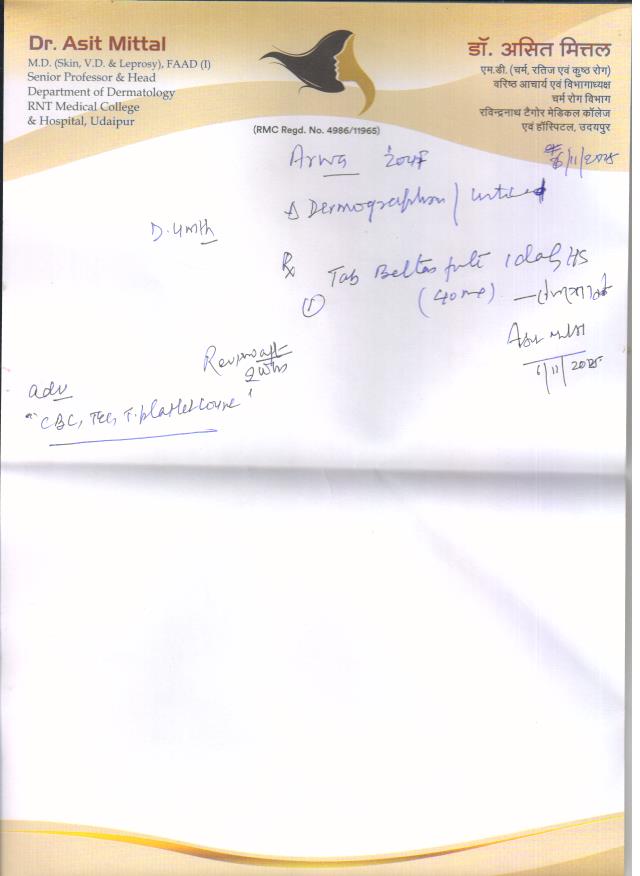 Dr. Asit Mittal
M.D. (Skin, V.D. & Leprosy), FAAD (I)
Senior Professor & Head
Department of Dermatology
RNT Medical College
& Hospital, Udaipur
डॉ. असित मित्तल
एम.डी. (चर्म, रतिज एवं कुष्ठ रोग)
वरिष्ठ आचार्य एवं विभागाध्यक्ष
चर्म रोग विभाग
रविन्द्रनाथ टैगोर मेडिकल कॉलेज
एवं हॉस्पिटल, उदयपुर
(RMC Regd. No. 4986/11965)
Arwa 20
6/11/2025
Δ Dermographism /
D. 4 mth
Rx
① Tab 1 daily HS
(40 mg)
Review aft
2 wks
6/11/2025
adv
"CBC, TEC, T. platelet count"